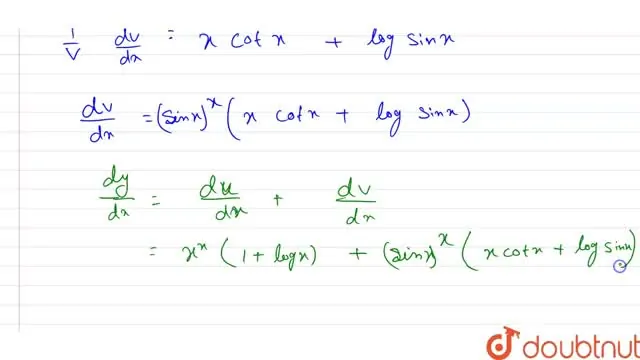 1/v dv/dx = x cot x + log sin x
dv/dx = (sin x)^x (x cot x + log sin x)
dy/dx = du/dx + dv/dx
= x^x (1 + log x) + (sin x)^x (x cot x + log sin x)
doubtnut